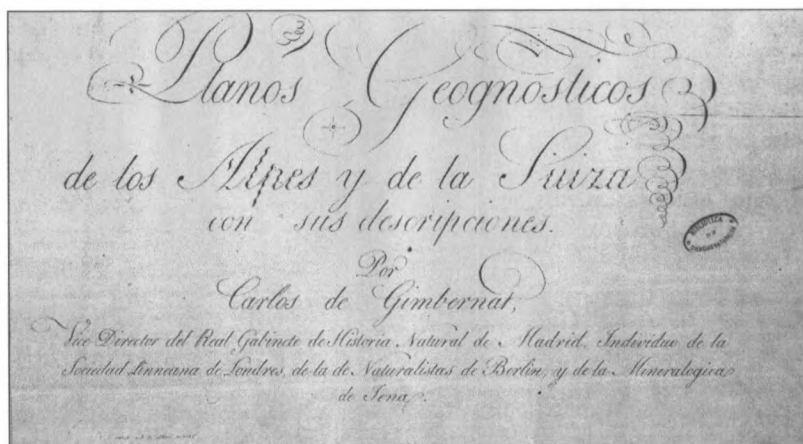 Planos Geognosticos
de los Alpes y de la Suiza
con sus descripciones.
Por
Carlos de Gimbernat,
Vice Director del Real Gabinete de Historia Natural de Madrid, Individuo de la
Sociedad Linneana de Londres, de la de Naturalistas de Berlin, y de la Mineralogica
de Jena.